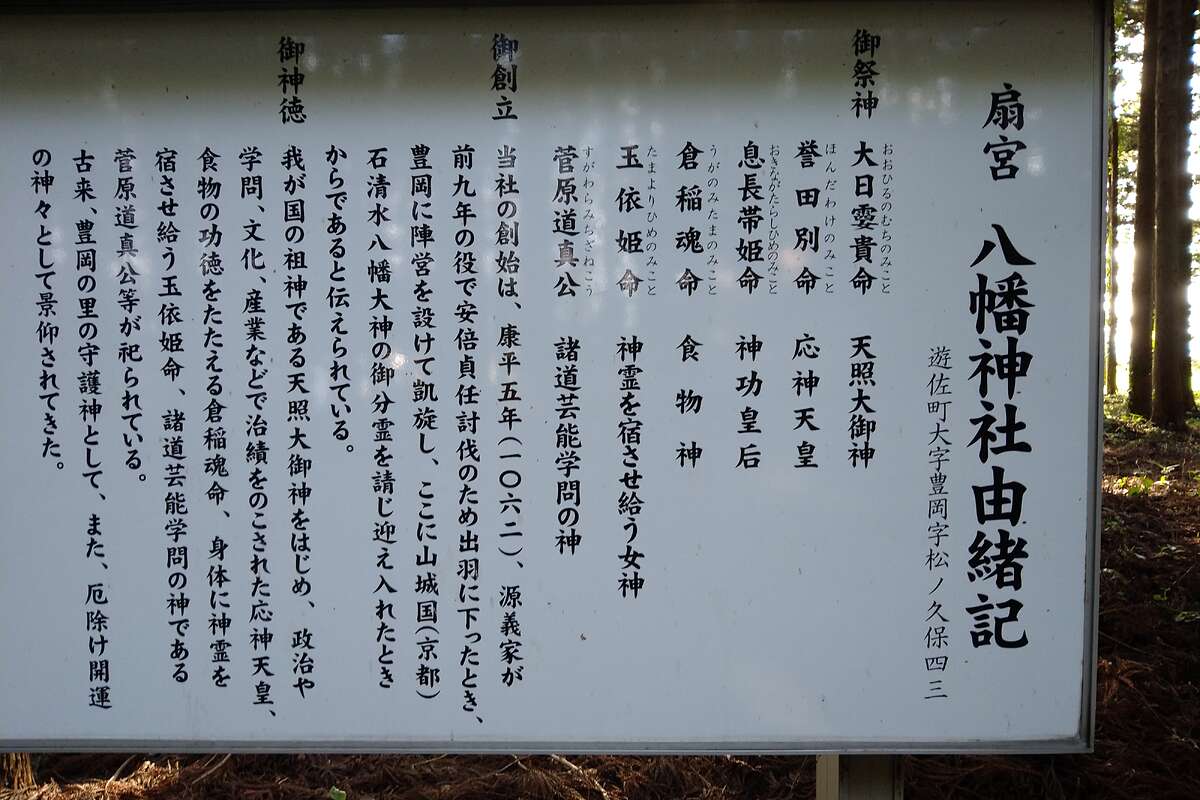 扇宮　八幡神社由緒記
遊佐町大字豊岡字松ノ久保四三
御祭神　大日孁貴命　天照大御神
おおひるのむちのみこと
誉田別命　応神天皇
ほんだわけのみこと
息長帯姫命　神功皇后
おきながたらしひめのみこと
倉稲魂命　食物神
うがのみたまのみこと
玉依姫命　神霊を宿させ給う女神
たまよりひめのみこと
菅原道真公　諸道芸能学問の神
すがわらみちざねこう
御創立　当社の創始は、康平五年（一〇六二）、源義家が
前九年の役で安倍貞任討伐のため出羽に下ったとき、
豊岡に陣営を設けて凱旋し、ここに山城国（京都）
石清水八幡大神の御分霊を請じ迎え入れたとき
からであると伝えられている。
御神徳　我が国の祖神である天照大御神をはじめ、政治や
学問、文化、産業などで治績をのこされた応神天皇、
食物の功徳をたたえる倉稲魂命、身体に神霊を
宿させ給う玉依姫命、諸道芸能学問の神である
菅原道真公等が祀られている。
古来、豊岡の里の守護神として、また、厄除け開運
の神々として景仰されてきた。